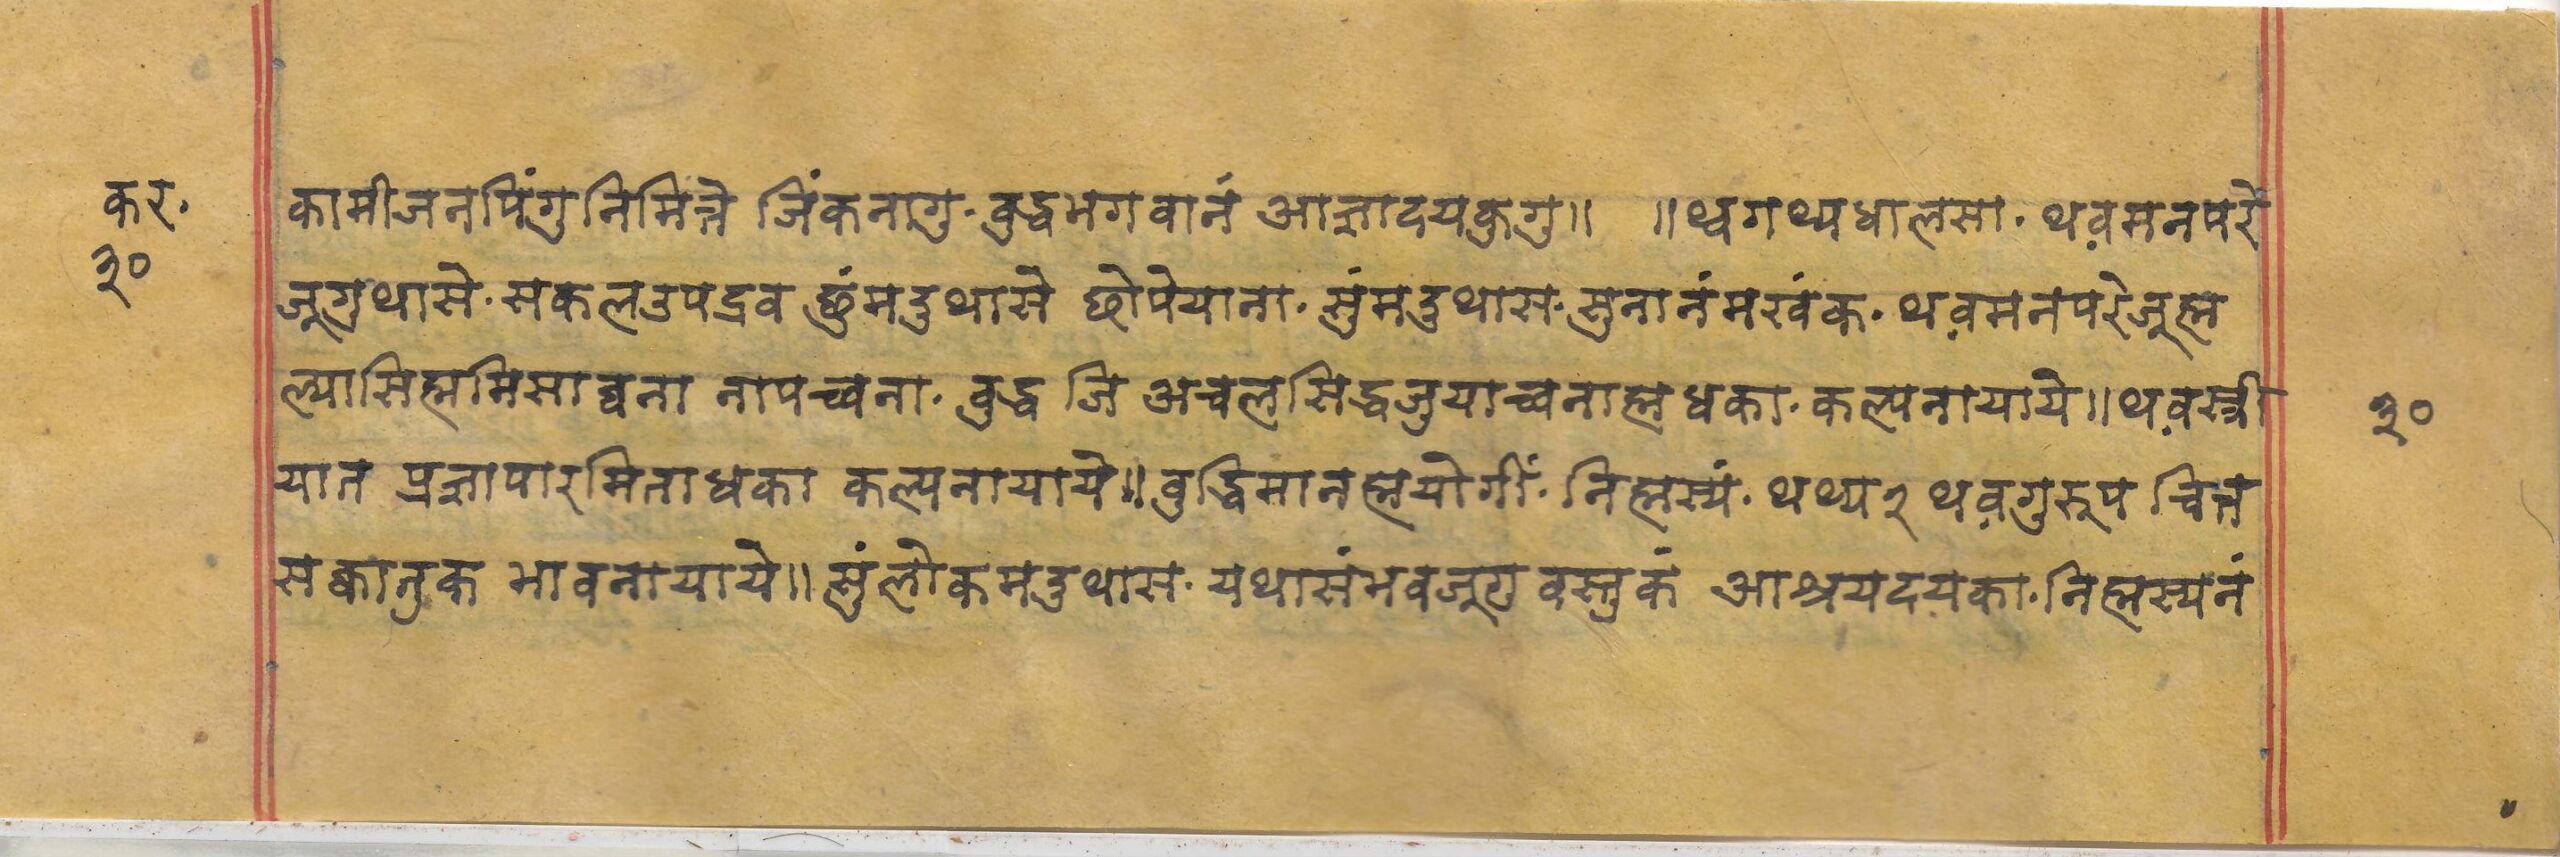 कर.
३०
कामीजनपिंगुनिमित्ते जिंकनागु. बुद्धभगवानं आज्ञादयकुगु॥ ॥थ्वगथ्यधालसा. थव़मनपरे
जूगुथासे. सकलउपद्रव छुंमदुथासे छोपेयाना. सुंमदुथास. सुनानंमखंक. थव़मनपरेजूह्म
ल्यासिह्ममिसाव्वना नापच्वना. बुद्ध जि अचलसिद्धजुयाच्वनाह्मधका. कल्पनायाये॥थव़स्त्री
यात प्रज्ञापारमिताधका कल्पनायाये॥बुद्धिमानह्मयोगीं. निह्मस्यं. थथ्य२ थव़गुरूप चित्त
सक्वातुक भावनायाये॥सुंलोकमदुथास. यथासंभवजूगु वस्तुकं आश्रयदयका. निह्मस्यनं
३०